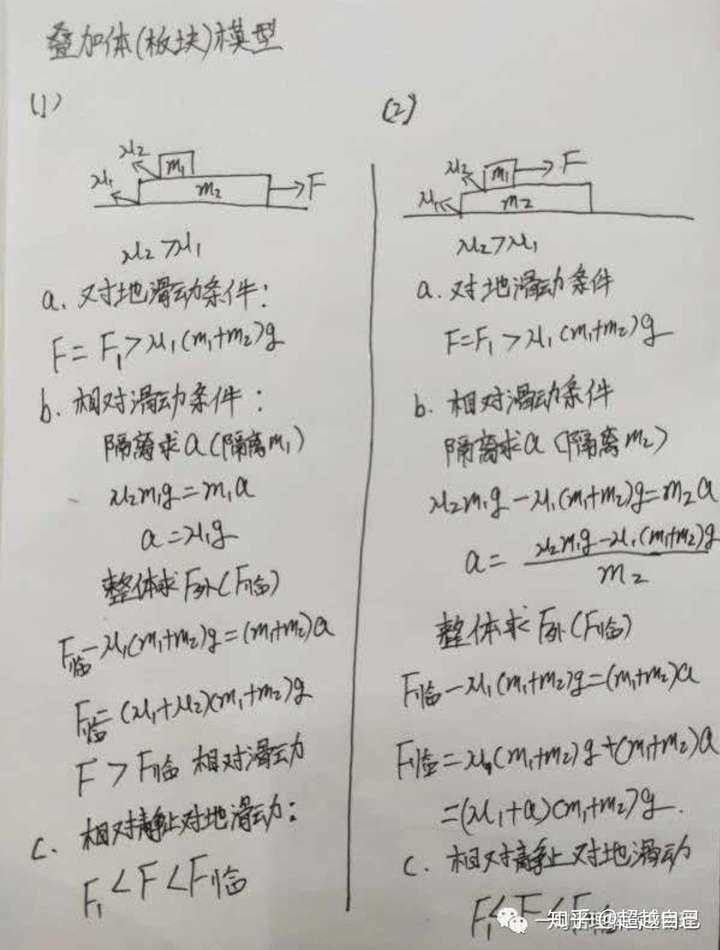 叠加体(板块)模型
(1)
μ2 m1
μ1 m2 F
μ2>μ1
a. 对地滑动条件:
F=F1>μ1(m1+m2)g
b. 相对滑动条件:
隔离求a(隔离m1)
μ2m1g=m1a
a=μ1g
整体求F外(F临)
F临-μ1(m1+m2)g=(m1+m2)a
F临=(μ1+μ2)(m1+m2)g
F>F临 相对滑动
c. 相对静止对地滑动:
F1<F<F临
(2)
μ2 m1 F
μ1 m2
μ2>μ1
a. 对地滑动条件
F=F1>μ1(m1+m2)g
b. 相对滑动条件
隔离求a(隔离m2)
μ2m1g-μ1(m1+m2)g=m2a
a=μ2m1g-μ1(m1+m2)g
m2
整体求F外(F临)
F临-μ1(m1+m2)g=(m1+m2)a
F临=μ1(m1+m2)g+(m1+m2)a
=(μ1+a)(m1+m2)g.
c. 相对静止对地滑动
F1<F<F临
知乎@超越自己